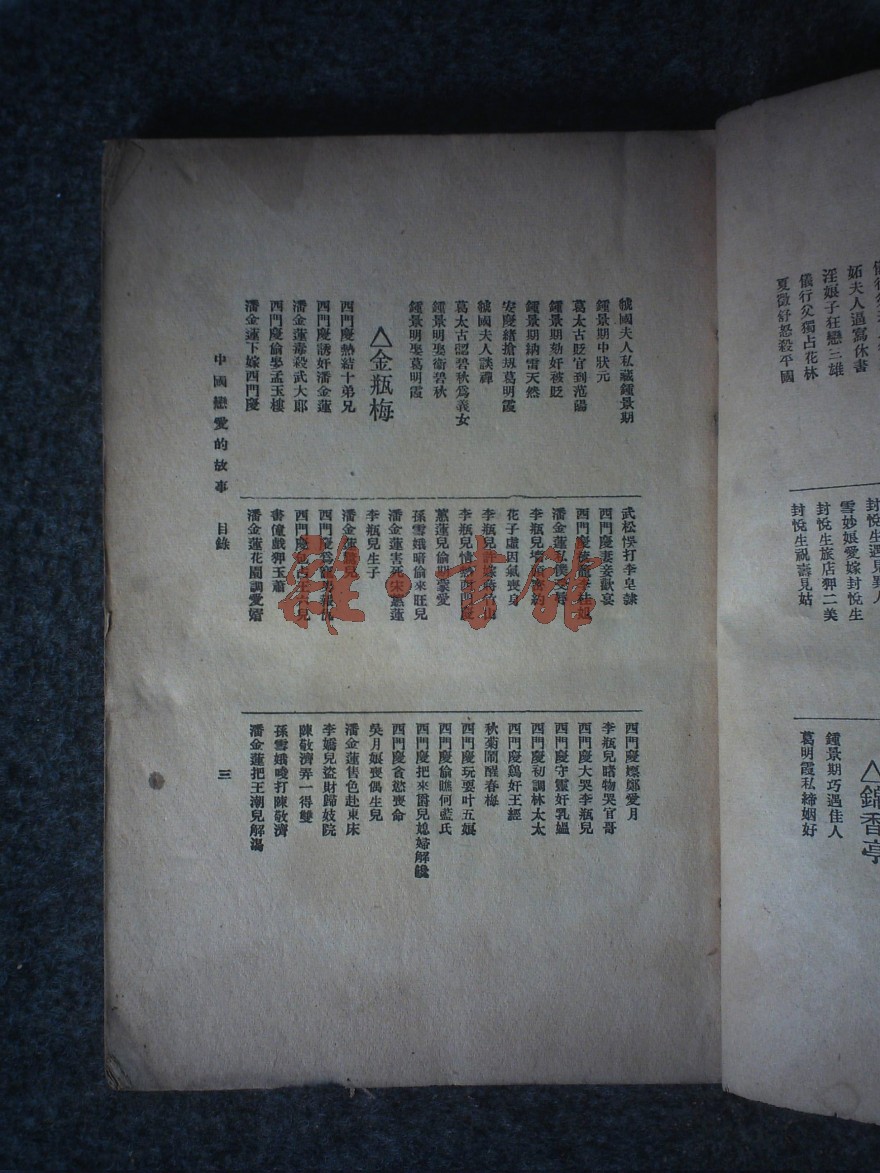 妬夫人逼寫休書
淫娘子狂戀三雄
儀行父獨占花林
夏徵舒怒殺平國
封悅生遇見異人
雪妙娘愛嫁封悅生
封悅生旅店狎二美
封悅生祝壽見姑
△錦香亭
鍾景期巧遇佳人
葛明霞私締姻好
虢國夫人私藏鍾景期
鍾景期中狀元
葛太古貶官到范陽
鍾景期劾奸被貶
鍾景期納雷天然
安慶緒搶規葛明霞
虢國夫人談禪
葛太古認碧秋爲義女
鍾景明娶衛碧秋
鍾景明娶葛明霞
△金瓶梅
西門慶熱結十弟兄
西門慶誘奸潘金蓮
潘金蓮毒殺武大郎
西門慶偷娶孟玉樓
潘金蓮下嫁西門慶
武松悞打李皂隸
西門慶妻妾歡宴
西門慶梳籠李桂姐
潘金蓮
李瓶兒 密約
花子虛因氣喪身
李瓶兒許嫁蔣竹山
李瓶兒情 西門慶
蕙蓮兒偷期蒙愛
孫雪娥暗偷來旺兒
潘金蓮害死宋蕙蓮
李瓶兒生子
潘金蓮
西門慶爲
西門慶包占王六兒
書僮戲狎玉蕭
潘金蓮花園調愛壻
西門慶嫖鄭愛月
李瓶兒睹物哭官哥
西門慶大哭李瓶兒
西門慶守靈奸乳媼
西門慶初調林太太
西門慶鷄奸王經
秋菊鬧醒春梅
西門慶玩耍叶五娘
西門慶偷瞧何藍氏
西門慶把來爵兒媳婦解饞
西門慶貪慾喪命
吳月娘喪偶生兒
潘金蓮售色赴東床
李嬌兒盜財歸妓院
陳敬濟弄一得雙
孫雪娥唆打陳敬濟
潘金蓮把王潮兒解渴
中國戀愛的故事 目錄
三
雜·書館